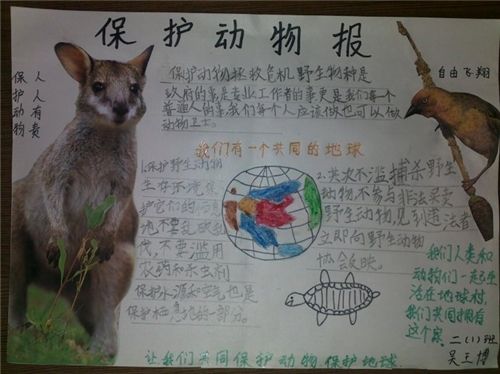 保护动物报
保护动物 人人有责
自由飞翔
保护动物拯救危机野生物种是
政府的事是专业工作者的事更是我们每一个
普通人的事我们每个人应该做也可以做
动物卫士。
我们有一个共同的地球
1.保护野生动物
生存环境保
护它们的
地不要乱砍乱
伐,不要滥用
农药和杀虫剂
保护水源和空气也是
保护栖息地的一部分。
2.其次不滥捕杀野生
动物不参与非法买卖
野生动物,见到违法者
立即向野生动物
协会反映。
我们人类和
动物们一起生
活在地球村,
我们共同拥有
这个家
二(1)班
吴玉博
让我们共同保护动物保护地球